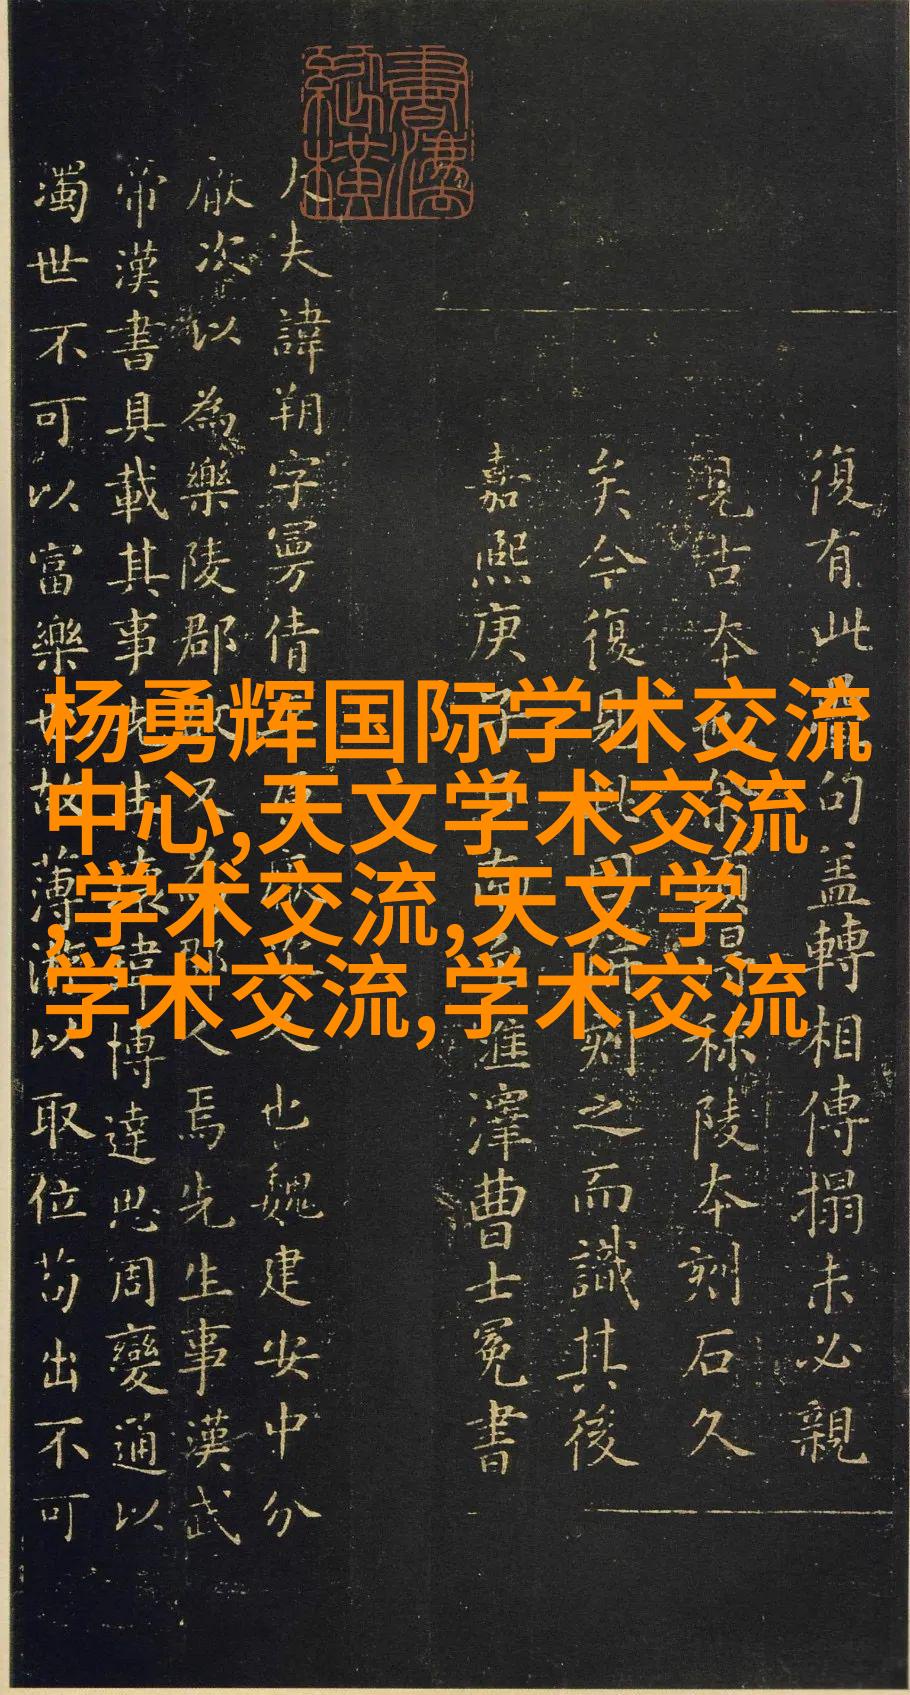 杨勇辉国际学术交流
中心,天文学术交流
,学术交流,天文学
学术交流,学术交流
復有此句蓋轉相傳搨未必親
見古本也秣陵本刻石久
矣今復見刻之而識其後
嘉熙庚子淮澤曹士冕書
大夫諱朔字曼倩人也魏建安中分
厥次以為樂陵郡故又為郡人焉先生事漢武
帝漢書具載其事先生瓌瑋博達思周變通以
濁世不可以富樂也故薄遊以取位苟出不可